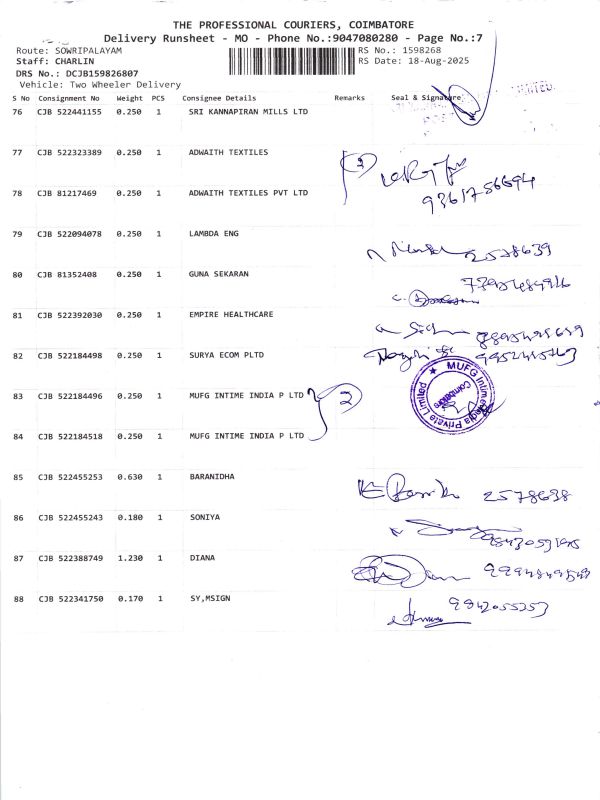 THE PROFESSIONAL COURIERS, COIMBATORE
Delivery Runsheet - MO - Phone No.:9047080280 - Page No.:7
Route: SOWRIPALAYAM RS No.: 1598268
Staff: CHARLIN RS Date: 18-Aug-2025
DRS No.: DCJB159826807
Vehicle: Two Wheeler Delivery
S No Consignment No Weight PCS Consignee Details Remarks Seal & Signature
76 CJB 522441155 0.250 1 SRI KANNAPIRAN MILLS LTD
77 CJB 522323389 0.250 1 ADWAITH TEXTILES
2
78 CJB 81217469 0.250 1 ADWAITH TEXTILES PVT LTD
79 CJB 522094078 0.250 1 LAMBDA ENG 2578639
80 CJB 81352408 0.250 1 GUNA SEKARAN
81 CJB 522392030 0.250 1 EMPIRE HEALTHCARE
82 CJB 522184498 0.250 1 SURYA ECOM PLTD
83 CJB 522184496 0.250 1 MUFG INTIME INDIA P LTD 2
MUFG Intime India Private Limited
Coimbatore
84 CJB 522184518 0.250 1 MUFG INTIME INDIA P LTD
85 CJB 522455253 0.630 1 BARANIDHA 2578638
86 CJB 522455243 0.180 1 SONIYA
87 CJB 522388749 1.230 1 DIANA
88 CJB 522341750 0.170 1 SY,MSIGN 9842055253